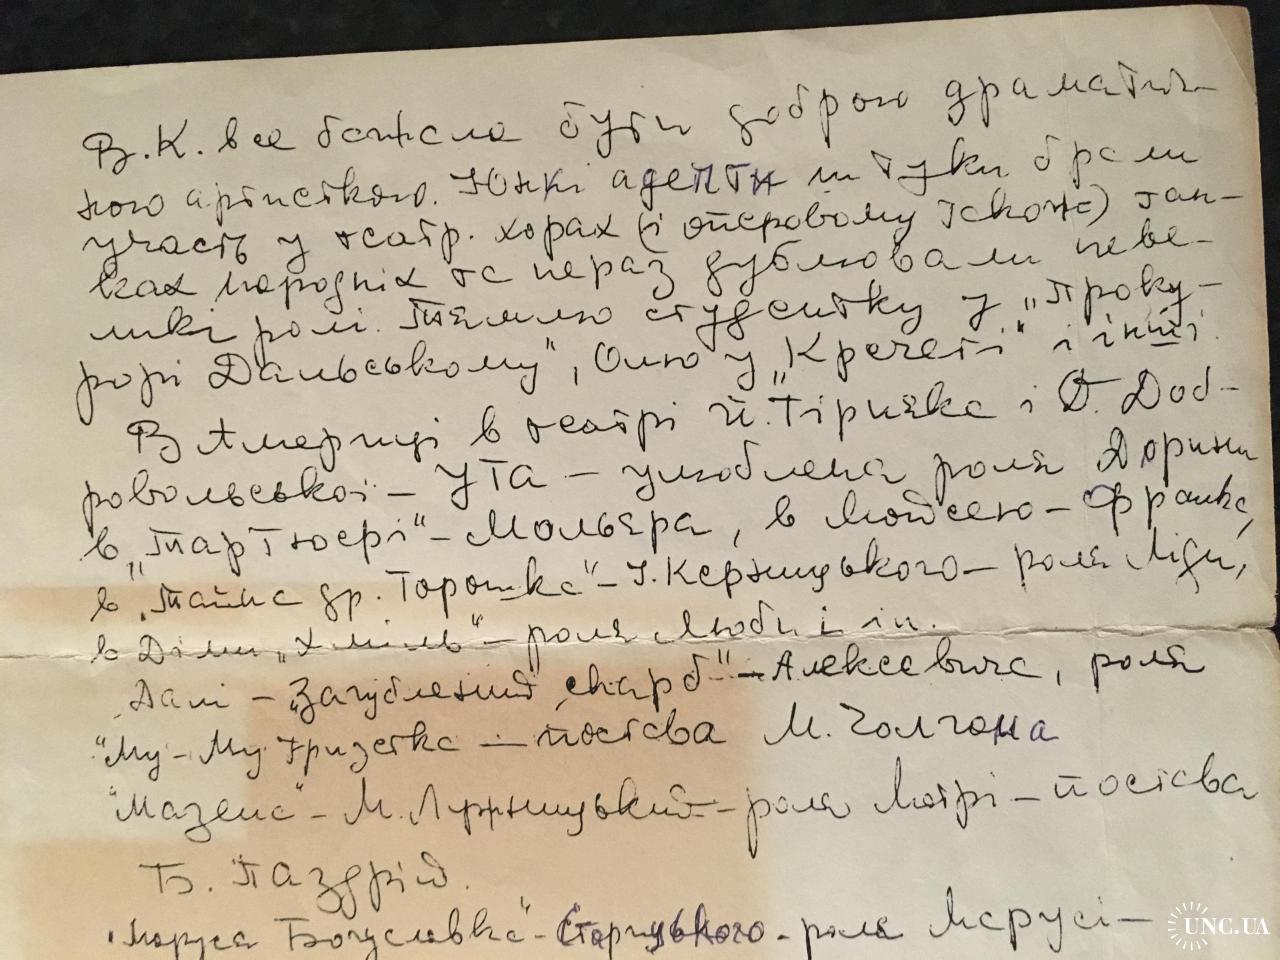 В.К. все бажала бути доброю драматич-
ною артисткою. Юнкі адепти штуки брали
участь у театр. хорах (і оперовому також) тан-
ках народніх та нераз дублювали неве-
ликі ролі. студентку у „Проку-
рорі Дальському", Олю у „Кречеті" і інші.
В Америці в театрі Й. Гірняка і О. Доб-
ровольської – УТА – улюблена роля Дорини
в „Тартюфі" – Мольєра, в Мойсею – Франка,
в „Тайна др. Горошка" – І. Керницького – роля Ліди,
в Діми „Хміль" – роля Люби і ін.
Далі – „Загублений скарб" – Алексевича, роля
"Му-Му Гризетка – постава М. Чолгана
"Мазепа" – М. Лужницький – роля Мотрі – постава
Б. Паздрій.
"Маруся Богуславка" – Старицького – роля Марусі –
UNC.UA